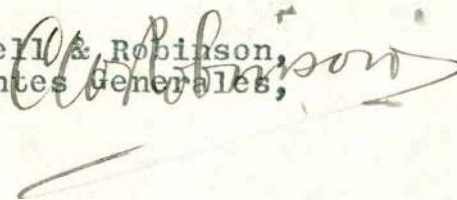 ell & Robinson,
ntes Generales,
Robinson